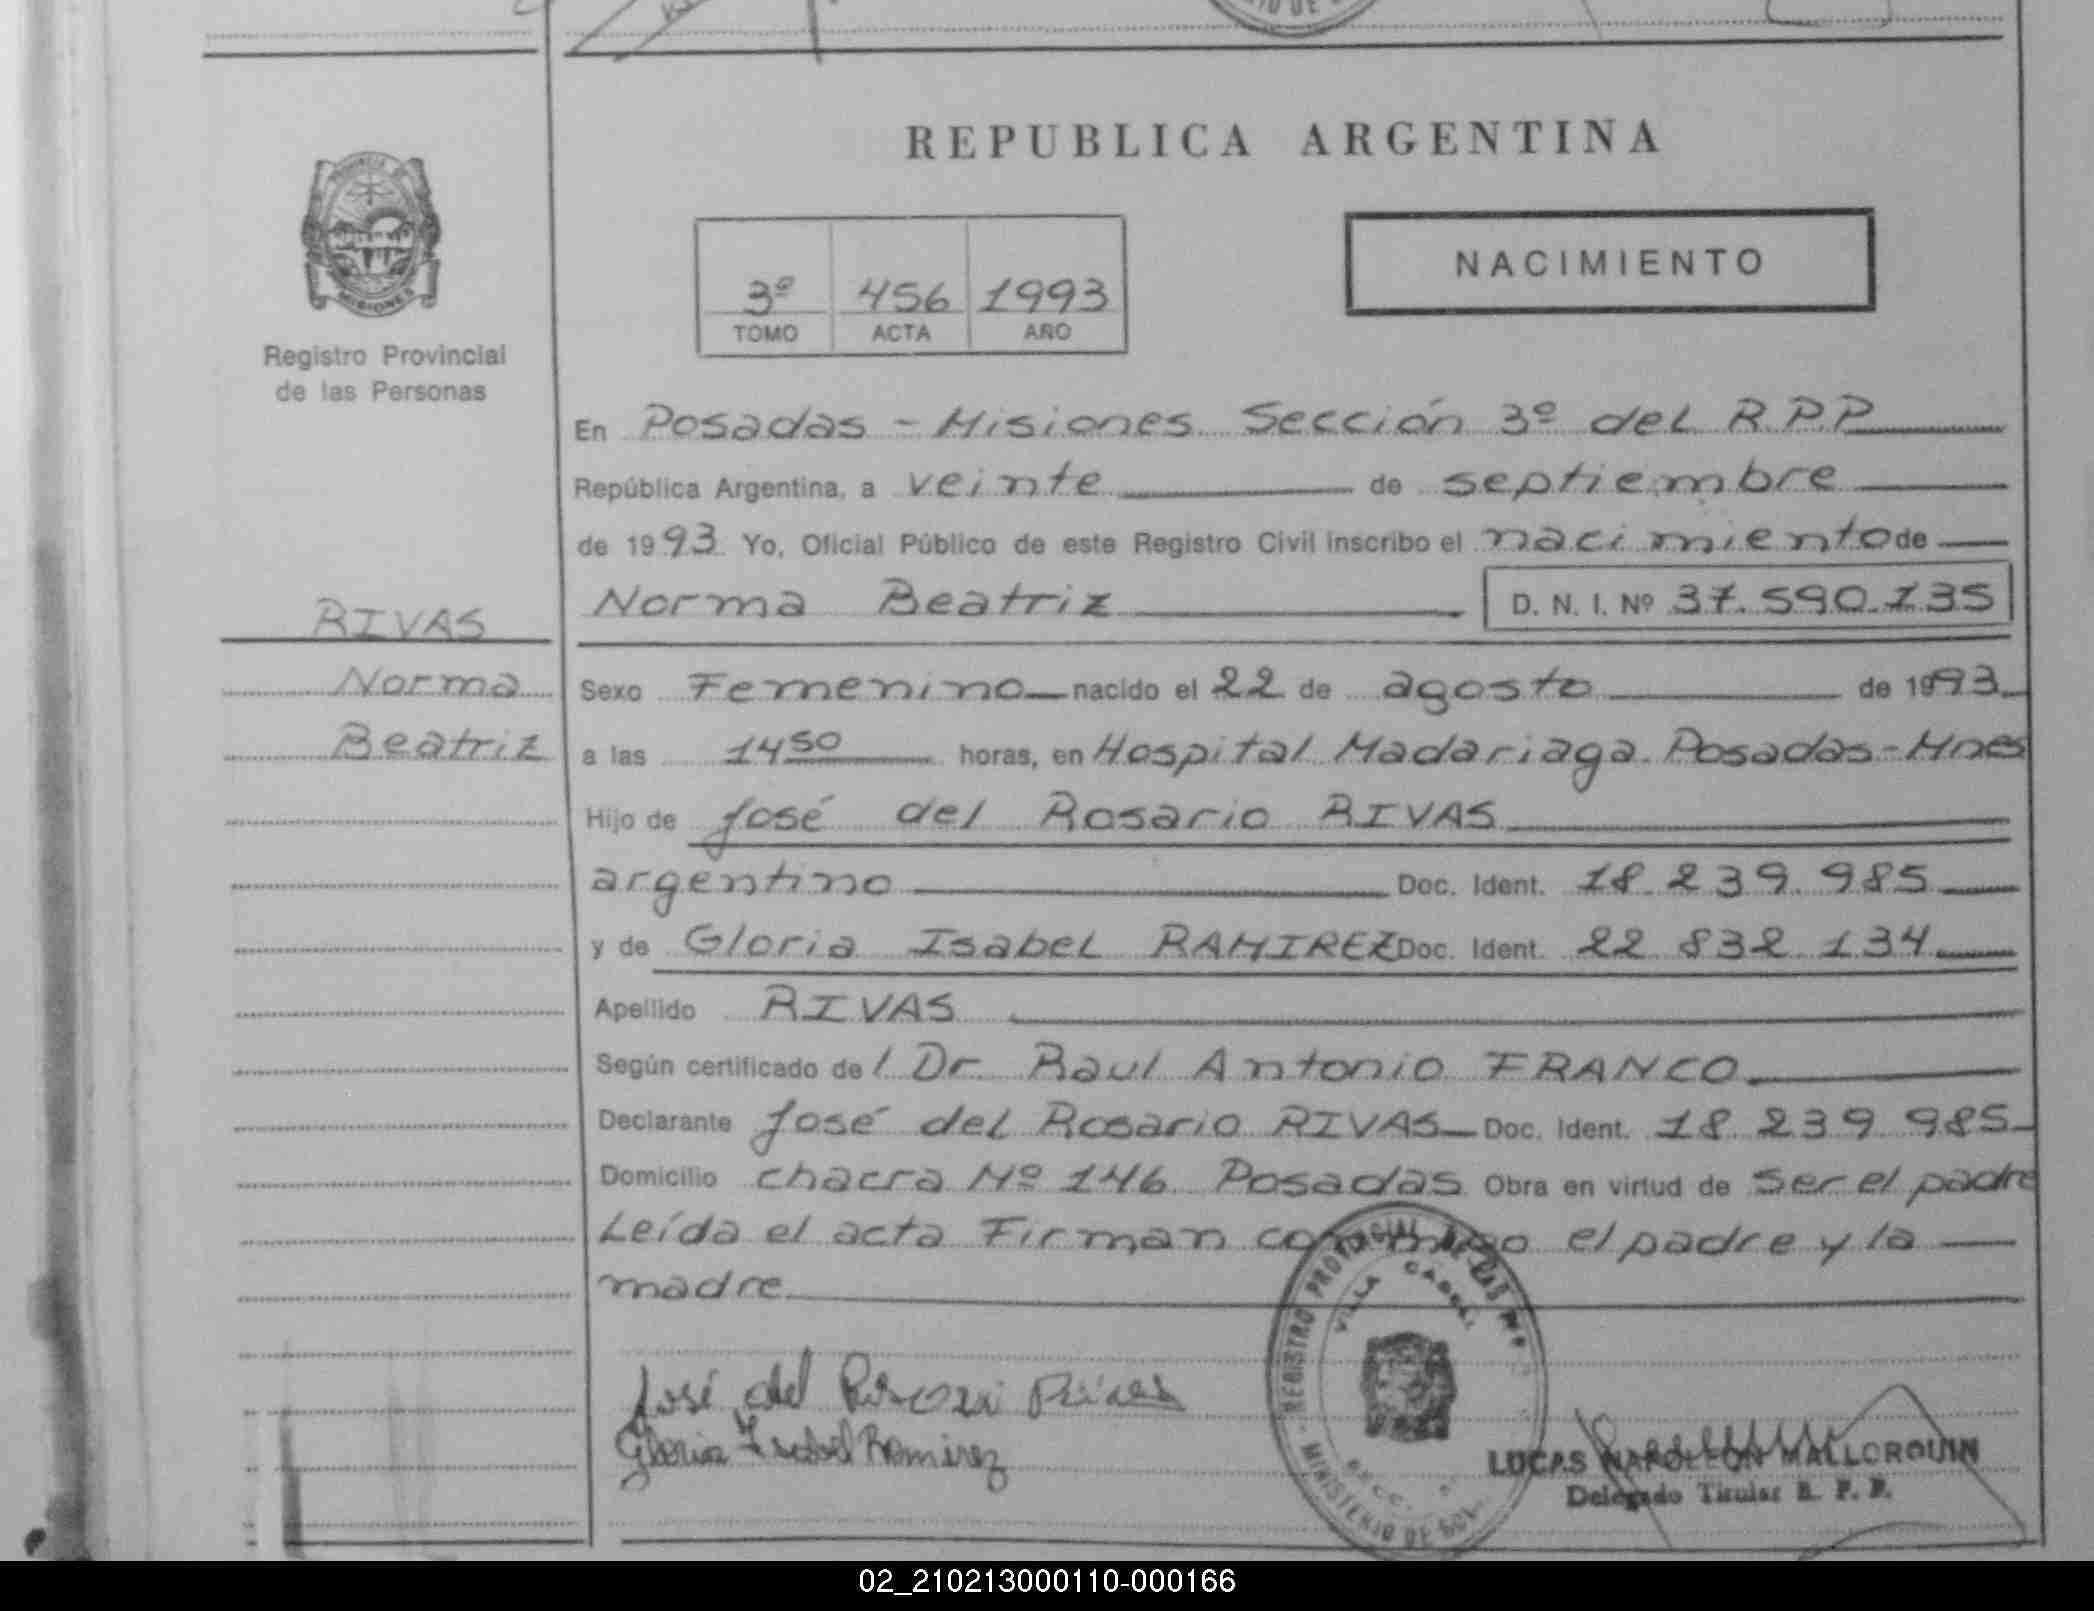 REPUBLICA ARGENTINA
PROVINCIA DE
MISIONES
Registro Provincial
de las Personas
3º 456 1993
TOMO ACTA AÑO
NACIMIENTO
En Posadas - Misiones Sección 3º del R.P.P
República Argentina, a veinte de septiembre
de 1993 Yo, Oficial Público de este Registro Civil inscribo el nacimiento de
Norma Beatriz D. N. I. Nº 37.590.135
RIVAS
Norma
Beatriz
Sexo Femenino nacido el 22 de agosto de 1993
a las 14 50 horas, en Hospital Madariaga Posadas-Mnes
Hijo de José del Rosario RIVAS
argentino Doc. Ident. 18 239 985
y de Gloria Isabel RAMIREZ Doc. Ident. 22 832 134
Apellido RIVAS
Según certificado del Dr. Raul Antonio FRANCO
Declarante José del Rosario RIVAS Doc. Ident. 18 239 985
Domicilio chacra Nº 146 Posadas Obra en virtud de ser el padre
Leída el acta Firman conmigo el padre y la
madre
REGISTRO PROVINCIAL DE LAS
VILLA CABRAL
SECC.
MINISTERIO DE GOB.
José del Rosari Rivas
Gloria Isabel Ramirez
LUCAS NAPOLEON MALLORQUIN
Delegado Titular R. P. P.
02_210213000110-000166